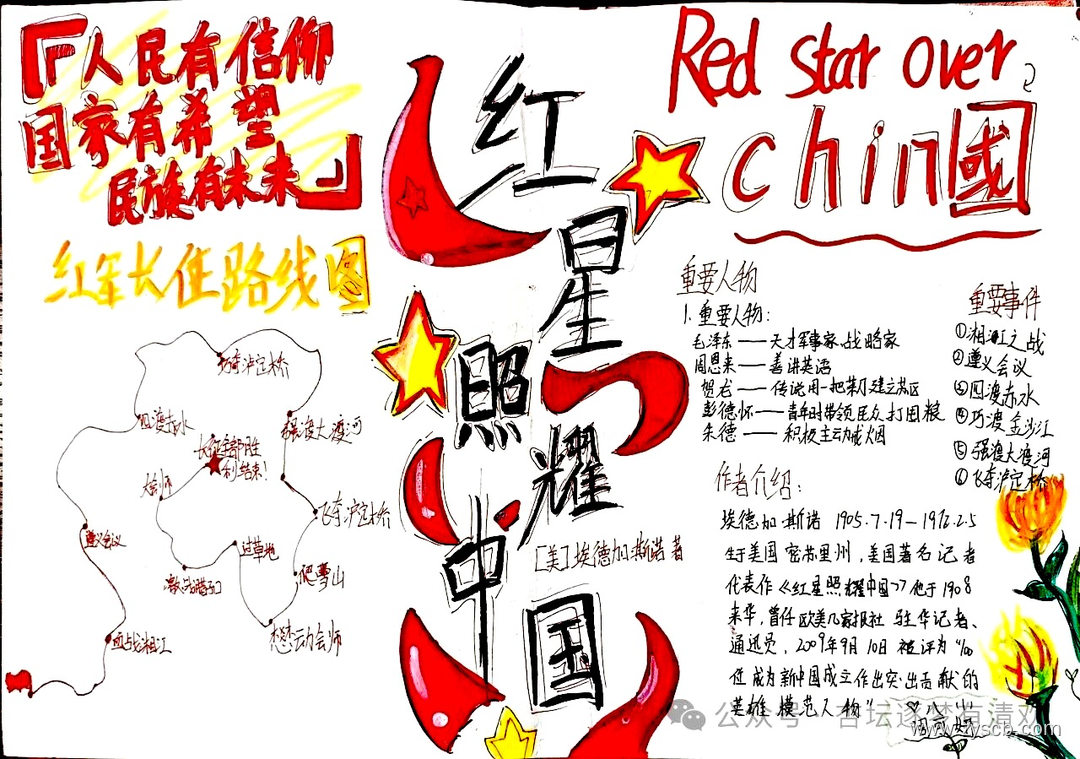 「人民有信仰
国家有希望
民族有未来」
红军长征路线图
巧夺泸定桥
四渡赤水
强渡大渡河
长征全部胜
利结束!
大会师
飞夺泸定桥
遵义会议
过草地
激战腊子口
爬雪山
血战湘江
懋功会师
红星照耀中国
[美]埃德加·斯诺 著
Red star over
chin國
重要人物
1.重要人物:
毛泽东——天才军事家、战略家
周恩来——善讲英语
贺龙——传说用一把菜刀建立苏区
彭德怀——青年时带领民众打囤粮
朱德——积极主动戒烟
重要事件
①湘江之战
②遵义会议
③四渡赤水
④巧渡金沙江
⑤强渡大渡河
⑥飞夺泸定桥
作者介绍:
埃德加·斯诺 1905.7.19—1972.2.5
生于美国密苏里州,美国著名记者
代表作《红星照耀中国》他于1908
来华,曾任欧美几家报社驻华记者、
通迅员,2009年9月10日被评为“100
位成为新中国成立作出突出贡献的
英雄模范人物”
公众号·杏坛逐梦有清欢
www.zyscb.com